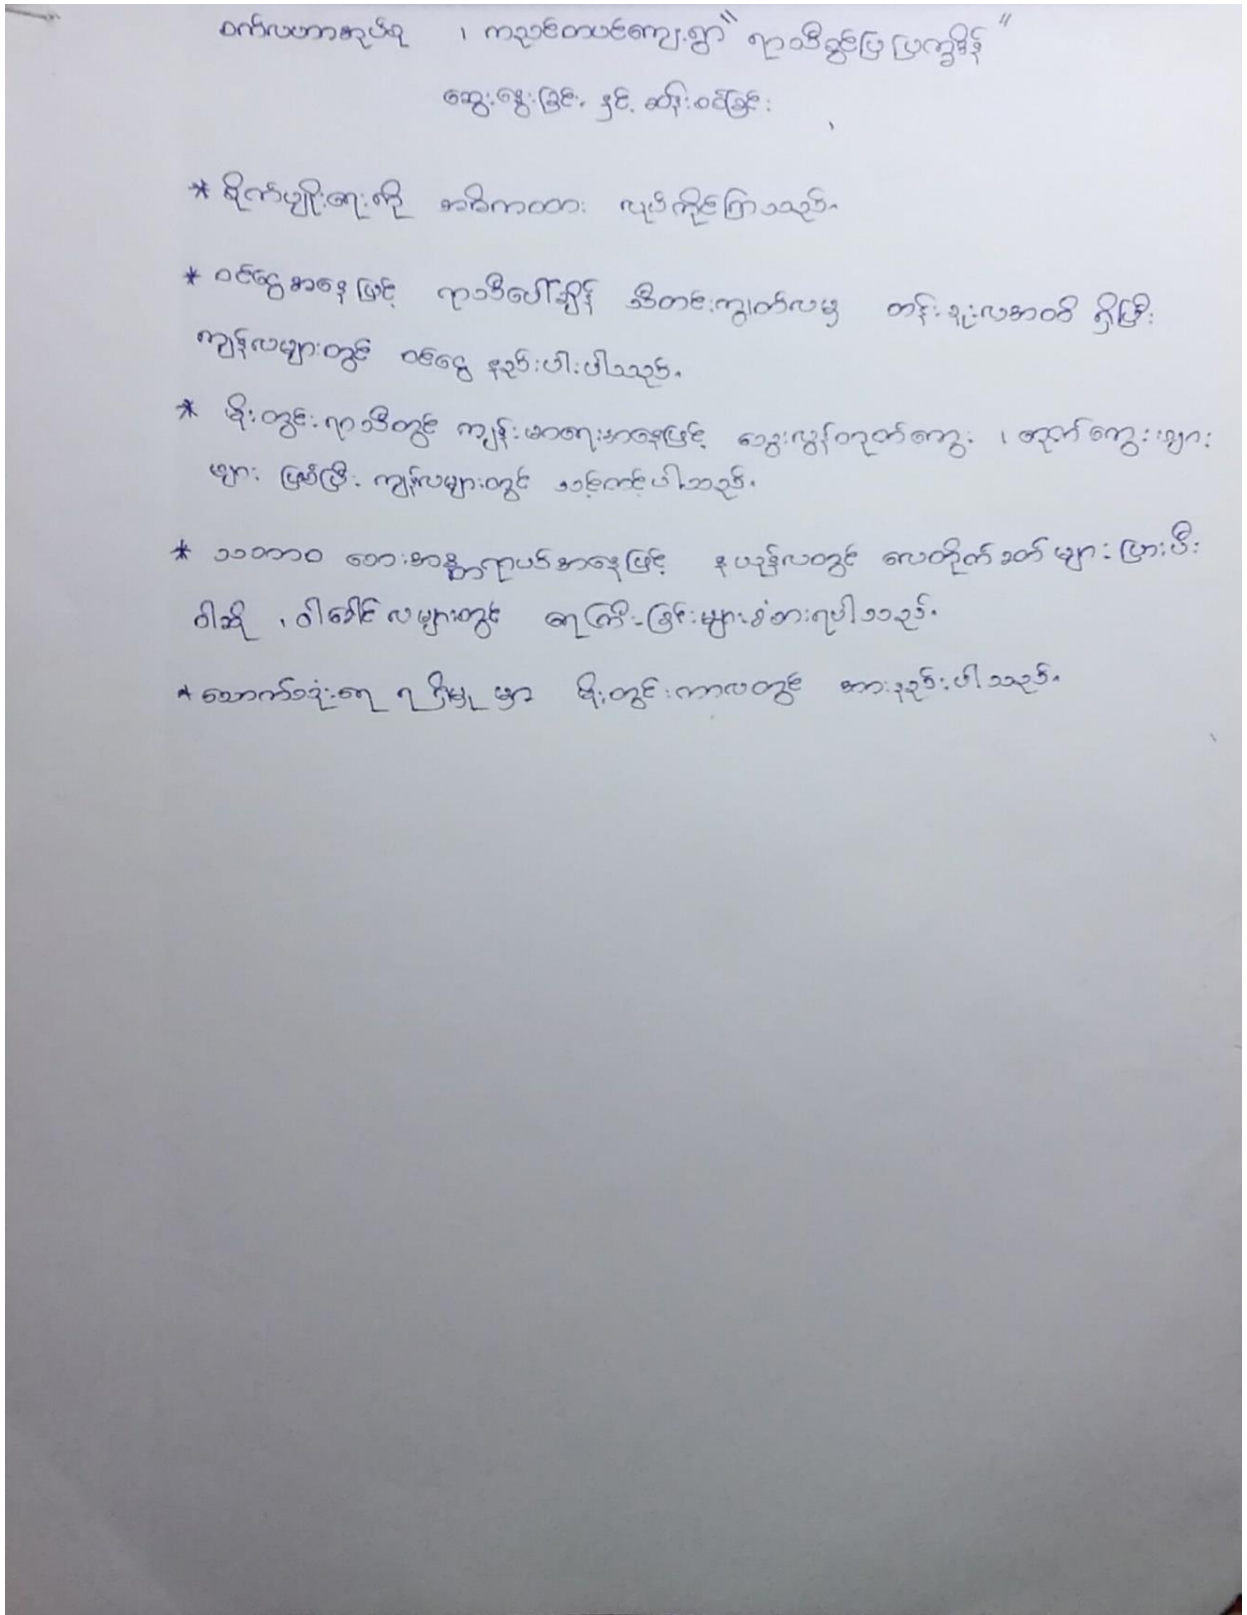 ဝက်လဟာအုပ်စု ၊ ကညင်တပင်ကျေးရွာ "ရာသီခွင်ပြ ပြက္ခဒိန်"
ဆွေးနွေးခြင်း နှင့် ဆန်းစစ်ခြင်း
* စိုက်ပျိုးရေးကို အဓိကထား လုပ်ကိုင်ကြသည်။
* ဝင်ငွေအနေဖြင့် ရာသီပေါ်ချိန် သီတင်းကျွတ်လမှ တန်ခူးလအထိ ရှိပြီး
ကျန်လများတွင် ဝင်ငွေ နည်းပါးပါသည်။
* မိုးတွင်းရာသီတွင် ကျန်းမာရေးအနေဖြင့် သွေးလွန်တုတ်ကွေး ၊ တုတ်ကွေးဖျား
ဖျား ဖြစ်ပြီး ကျန်လများတွင် သင့်တင့်ပါသည်။
* သဘာဝ ဘေးအန္တရာယ်အနေဖြင့် နယုန်လတွင် လေတိုက်ခတ်များပြားပီး
ဝါဆို ၊ ဝါခေါင်လများတွင် ရေကြီးခြင်းများခံစားရပါသည်။
* သောက်သုံးရေ ရရှိမှု မှာ မိုးတွင်းကာလတွင် အားနည်းပါသည်။